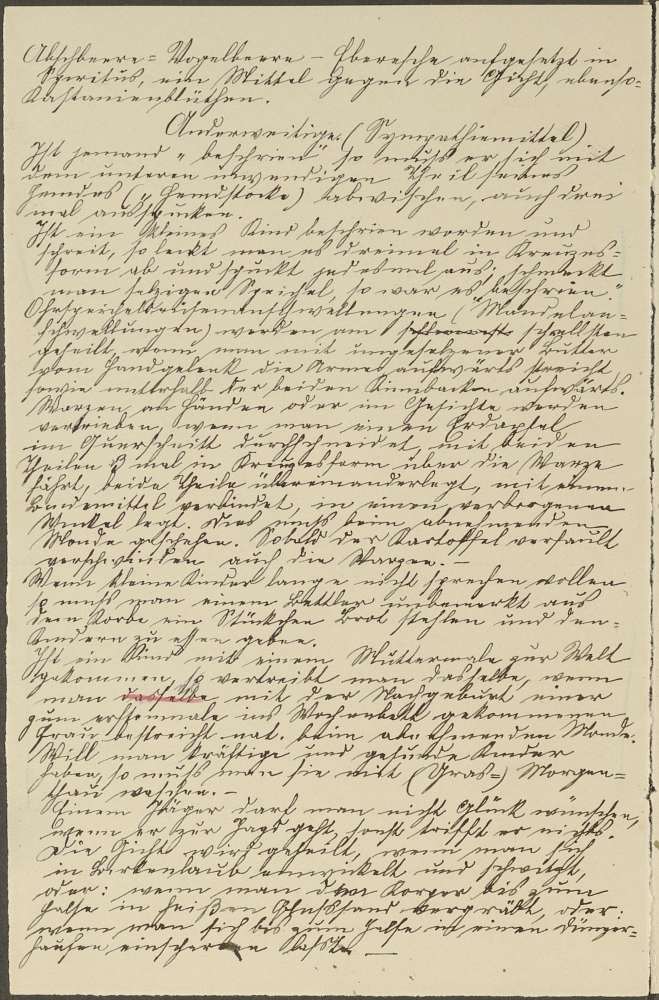 Abschbeere = Vogelbeere – Eberesche aufgesetzt in
Spiritus, ein Mittel gegen die Gicht, ebenso=
Kastanienblüthen.
Anderweitige (Sympathiemittel)
Ist jemand „beschrien", so muß er sich mit
dem unteren inwendigen Theil seines
Hemdes („Hemdstocke) abwischen, auch drei
mal ausspucken.
Ist ein kleines Kind beschrien worden und
schreit, so leckt man es dreimal in Kreuzes=
form ab und spuckt jedesmal aus; schmeckt
man salzigen Speichel, so war es „beschrien."
Ohrspeicheldrüsen („Mandelan=
schwellungen) werden am schnellsten
geheilt, wenn man mit ungesalzener Butter
vom Handgelenk die Armes aufwärts streicht
sowie unterhalb der beiden Kinnbacken aufwärts.
Warzen an Händen oder im Gesichte werden
vertrieben, wenn man einen Erdapfel
im Querschnitt durchschneidet, mit beiden
Theilen 3 mal in Kreuzesform über die Warze
fährt, beide Theile übereinanderlegt, mit einem
Bindemittel verbindet, in einen verborgenen
Winkel legt. Dies muß beim abnehmenden
Monde geschehen. Sobald der Kartoffel verfault
verschwinden auch die Warzen. –
Wenn kleine Kinder lange nicht sprechen wollen
so muß man einem Bettler unbemerkt aus
dem Korbe ein Stückchen Brot stehlen und den=
Kindern zu essen geben.
Ist ein Kind mit einem Muttermale zur Welt
gekommen, so vertreibt man dasselbe, wenn
man dasselbe mit der Nachgeburt einer
zum erstenmale ins Wochenbett gekommenen
Frau bestreicht nat. beim abnehmenden Monde.
Will man kräftige und gesunde Kinder
haben, so muß man sie mit (Gras=) Morgen=
thau waschen. –
Einem Jäger darf man nicht Glück wünschen,
wenn er zur Jagd geht, sonst trifft er nichts.
Die Gicht wird geheilt, wenn man sich
in Birkenlaub einwickelt und schwitzt,
oder: wenn man den Körper bis zum
Halse in heißen Flußsand vergräbt, oder:
wenn man sich bis zum Halse in einen Dünger=
haufen einscharren läßt. –